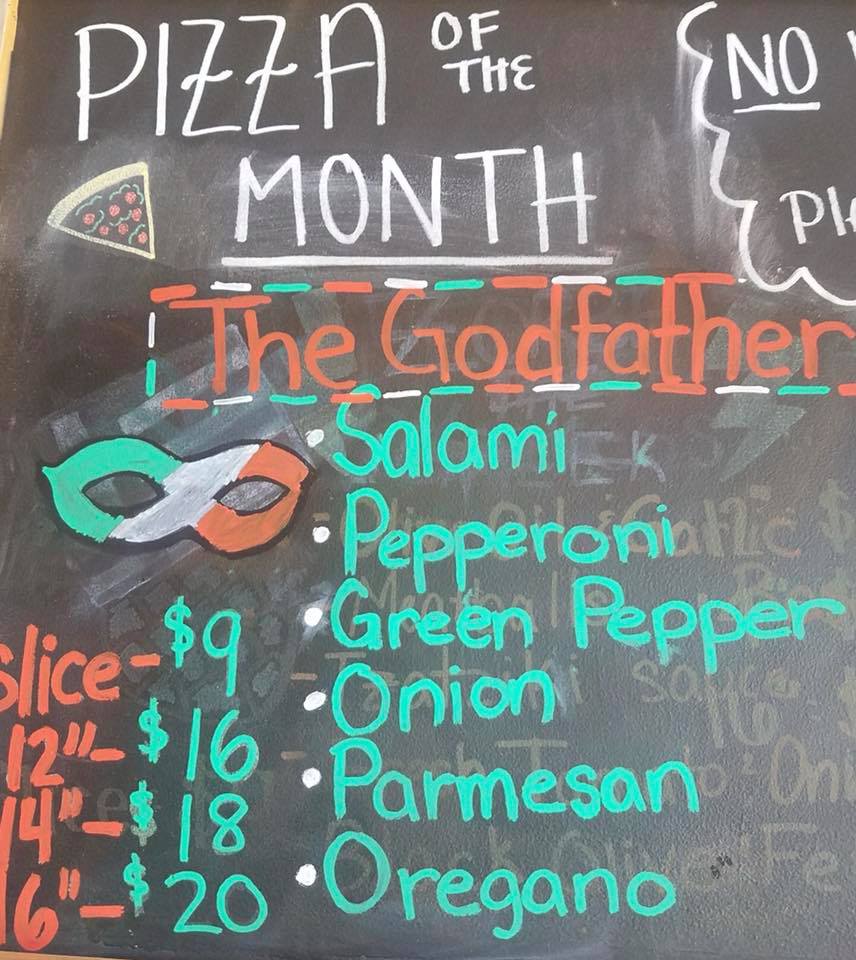 PIZZA OF THE
MONTH
NO
The Godfather
• Salami
• Pepperoni
• Green Pepper
• Onion
• Parmesan
• Oregano
Slice - $9
12" - $16
14" - $18
16" - $20